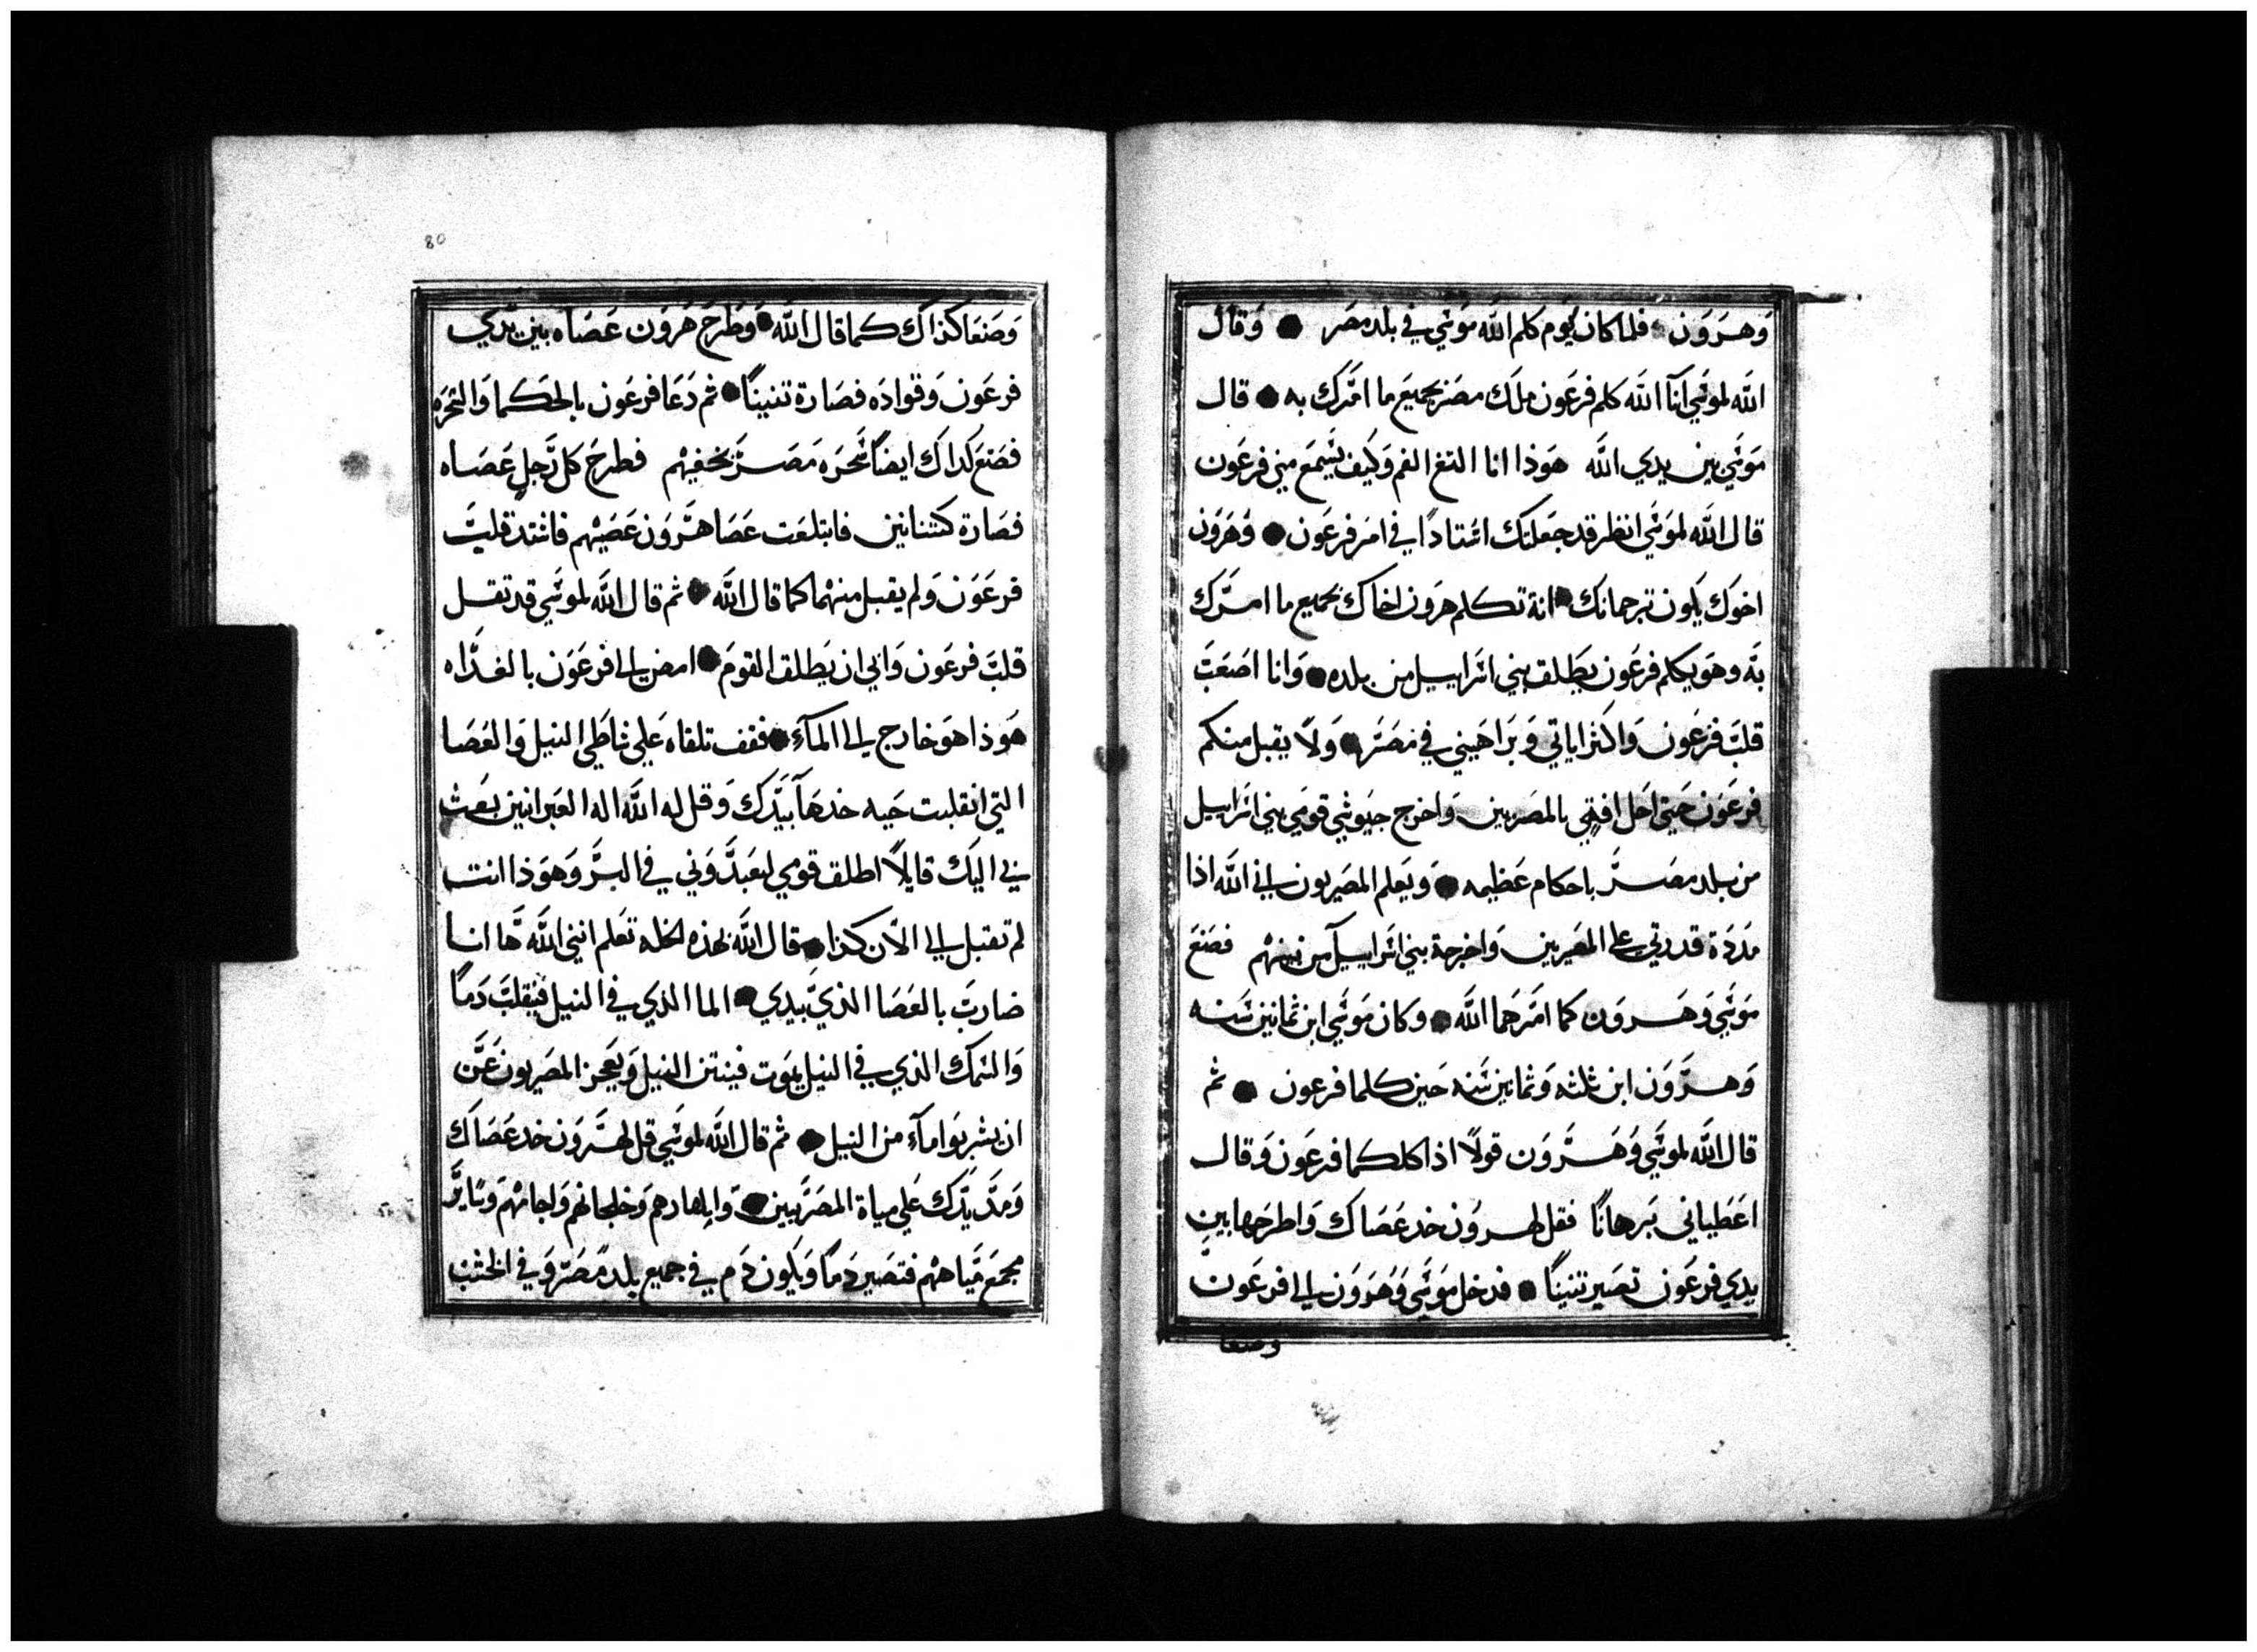 وهرون • فلما كان يوم كلم الله موسي في بلد مصر • وقال
الله لموسي انا الله كلم فرعون ملك مصر بجميع ما امرك به • قال
موسي بين يدي الله هوذا انا التغ الفم وكيف يسمع مني فرعون
قال الله لموسي انظر قد جعلتك استادًا في امر فرعون • وهرون
اخوك يكون ترجمانك • انة تكلم هرون اخاك بجميع ما امرك
به وهو يكلم فرعون يطلق بني اسراييل من بلده • وانا اصعب
قلب فرعون واكثر اياتي وبراهيني في مصر • ولا يقبل منكم
فرعون حتي احل افتي بالمصريين واخرج جيوشي قومي بني اسراييل
من بلد مصر باحكام عظيمه • ويعلم المصريون اني الله اذا
مددة قدرتي علي المصريين واخرجة بني اسراييل من بينهم فصنع
موسي وهرون كما امرهما الله • وكان موسي ابن ثمانين سنه
وهرون ابن ثلثه وثمانين سنه حين كلما فرعون • ثم
قال الله لموسي وهرون قولًا اذا كلكما فرعون وقال
اعطياني برهانًا فقل لهرون خد عصاك واطرحها بين
يدي فرعون تصير تنينًا • فدخل موسي وهرون الي فرعون
وصنعا
80
وصنعا كذاك كما قال الله • وطرح هرون عصاه بين يدي
فرعون وقواده فصارة تنينًا • ثم دعا فرعون بالحكما والسحره
فصنع كداك ايضًا سحره مصر بخفيهم فطرح كل رجل عصاه
فصارة كتنانين فابتلعت عصا هرون عصيهم فاشتد قلب
فرعون ولم يقبل منهما كما قال الله • ثم قال الله لموسي قد تقل
قلب فرعون وابي ان يطلق القوم • امض الي فرعون بالغداه
هوذا هو خارج الي المآء • فقف تلقاه علي شاطي النيل والعصا
التي انقلبت حيه خدها بيدك وقل له الله اله العبرانين بعث
ني اليك قايلًا اطلق قومي ليعبدوني في البر وهوذا انت
لم تقبل الي الآن كذا • قال الله بهذه الخله تعلم انني الله ها انا
ضارب بالعصا الذي بيدي • الما الذي في النيل فينقلب دمًا
والسمك الذي في النيل يموت فينتن النيل ويعجز المصريون عن
ان يشربوا مآء من النيل • ثم قال الله لموسي قل لهرون خد عصاك
ومد يدك علي مياة المصريين • وانهارهم وخلجانهم واجامهم وساير
مجمع مياههم فتصير دمًا ويكون دم في جميع بلد مصر وفي الخشب